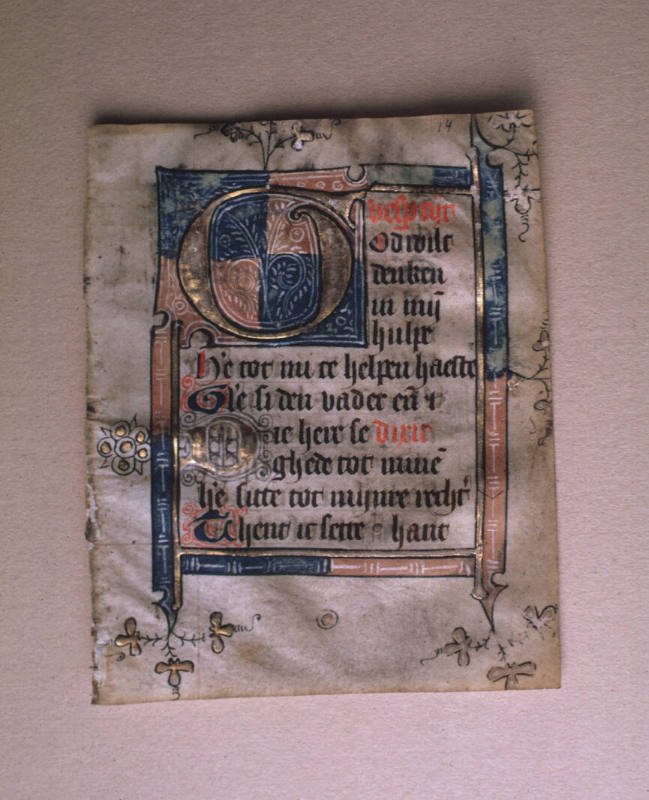 14
vespt̄ijt
God wilt
denken
in mij̄
hulpe
h'e tot mi te helpen haeste
Gl'e si den vader eñ t
Die here se dixit
ghede tot minē
h'e sitte tot mijnre recht'
Thent ic sette hant